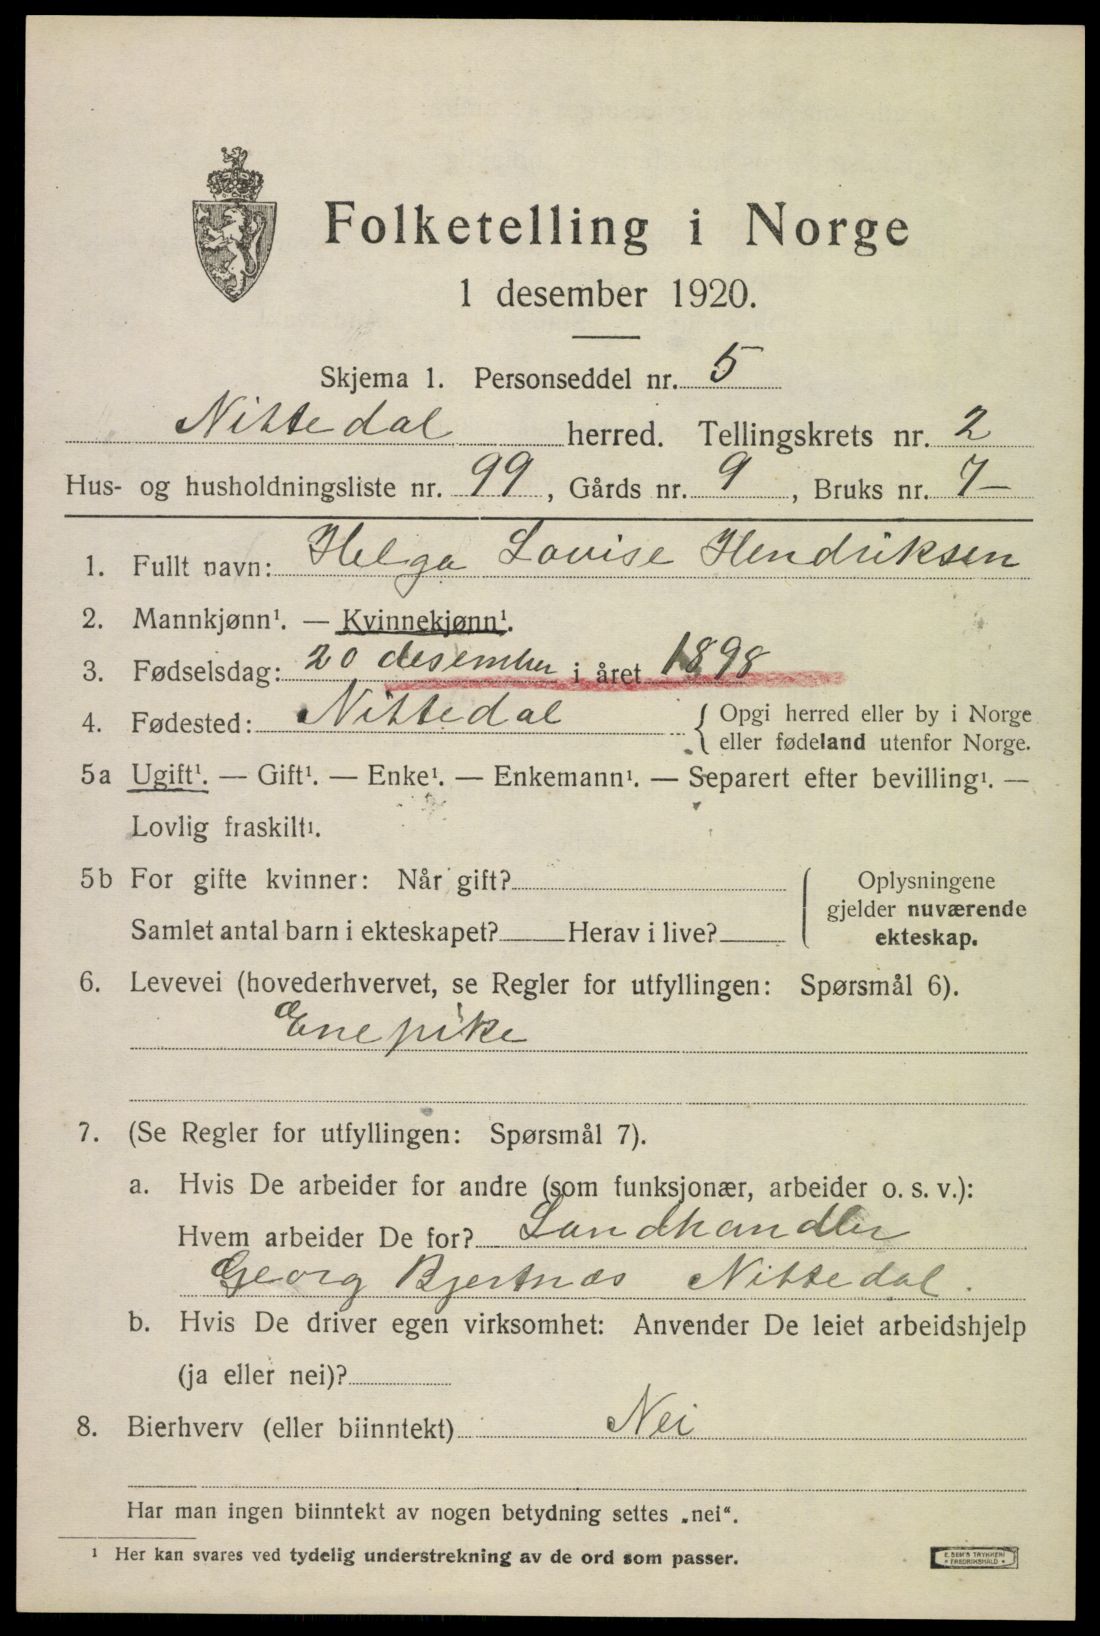 Folketelling i Norge
1 desember 1920.
Skjema 1. Personseddel nr. 5
Nittedal herred. Tellingskrets nr. 2
Hus- og husholdningsliste nr. 99, Gårds nr. 9, Bruks nr. 7
1. Fullt navn: Helga Lovise Hendriksen
2. Mannkjønn¹. — Kvinnekjønn¹.
3. Fødselsdag: 20 desember i året 1898
4. Fødested: Nittedal { Opgi herred eller by i Norge
eller fødeland utenfor Norge.
5a Ugift¹. — Gift¹. — Enke¹. — Enkemann¹. — Separert efter bevilling¹. —
Lovlig fraskilt¹.
5b For gifte kvinner: Når gift?
Samlet antal barn i ekteskapet? Herav i live?
Oplysningene
gjelder nuværende
ekteskap.
6. Levevei (hovederhvervet, se Regler for utfyllingen: Spørsmål 6).
Enepike
7. (Se Regler for utfyllingen: Spørsmål 7).
a. Hvis De arbeider for andre (som funksjonær, arbeider o. s. v.):
Hvem arbeider De for? Landhandler
Georg Bjertnæs Nittedal.
b. Hvis De driver egen virksomhet: Anvender De leiet arbeidshjelp
(ja eller nei)?
8. Bierhverv (eller biinntekt) Nei
Har man ingen biinntekt av nogen betydning settes „nei“.
¹ Her kan svares ved tydelig understrekning av de ord som passer.
E. SEM'S TRYKKERI
FREDRIKSHALD